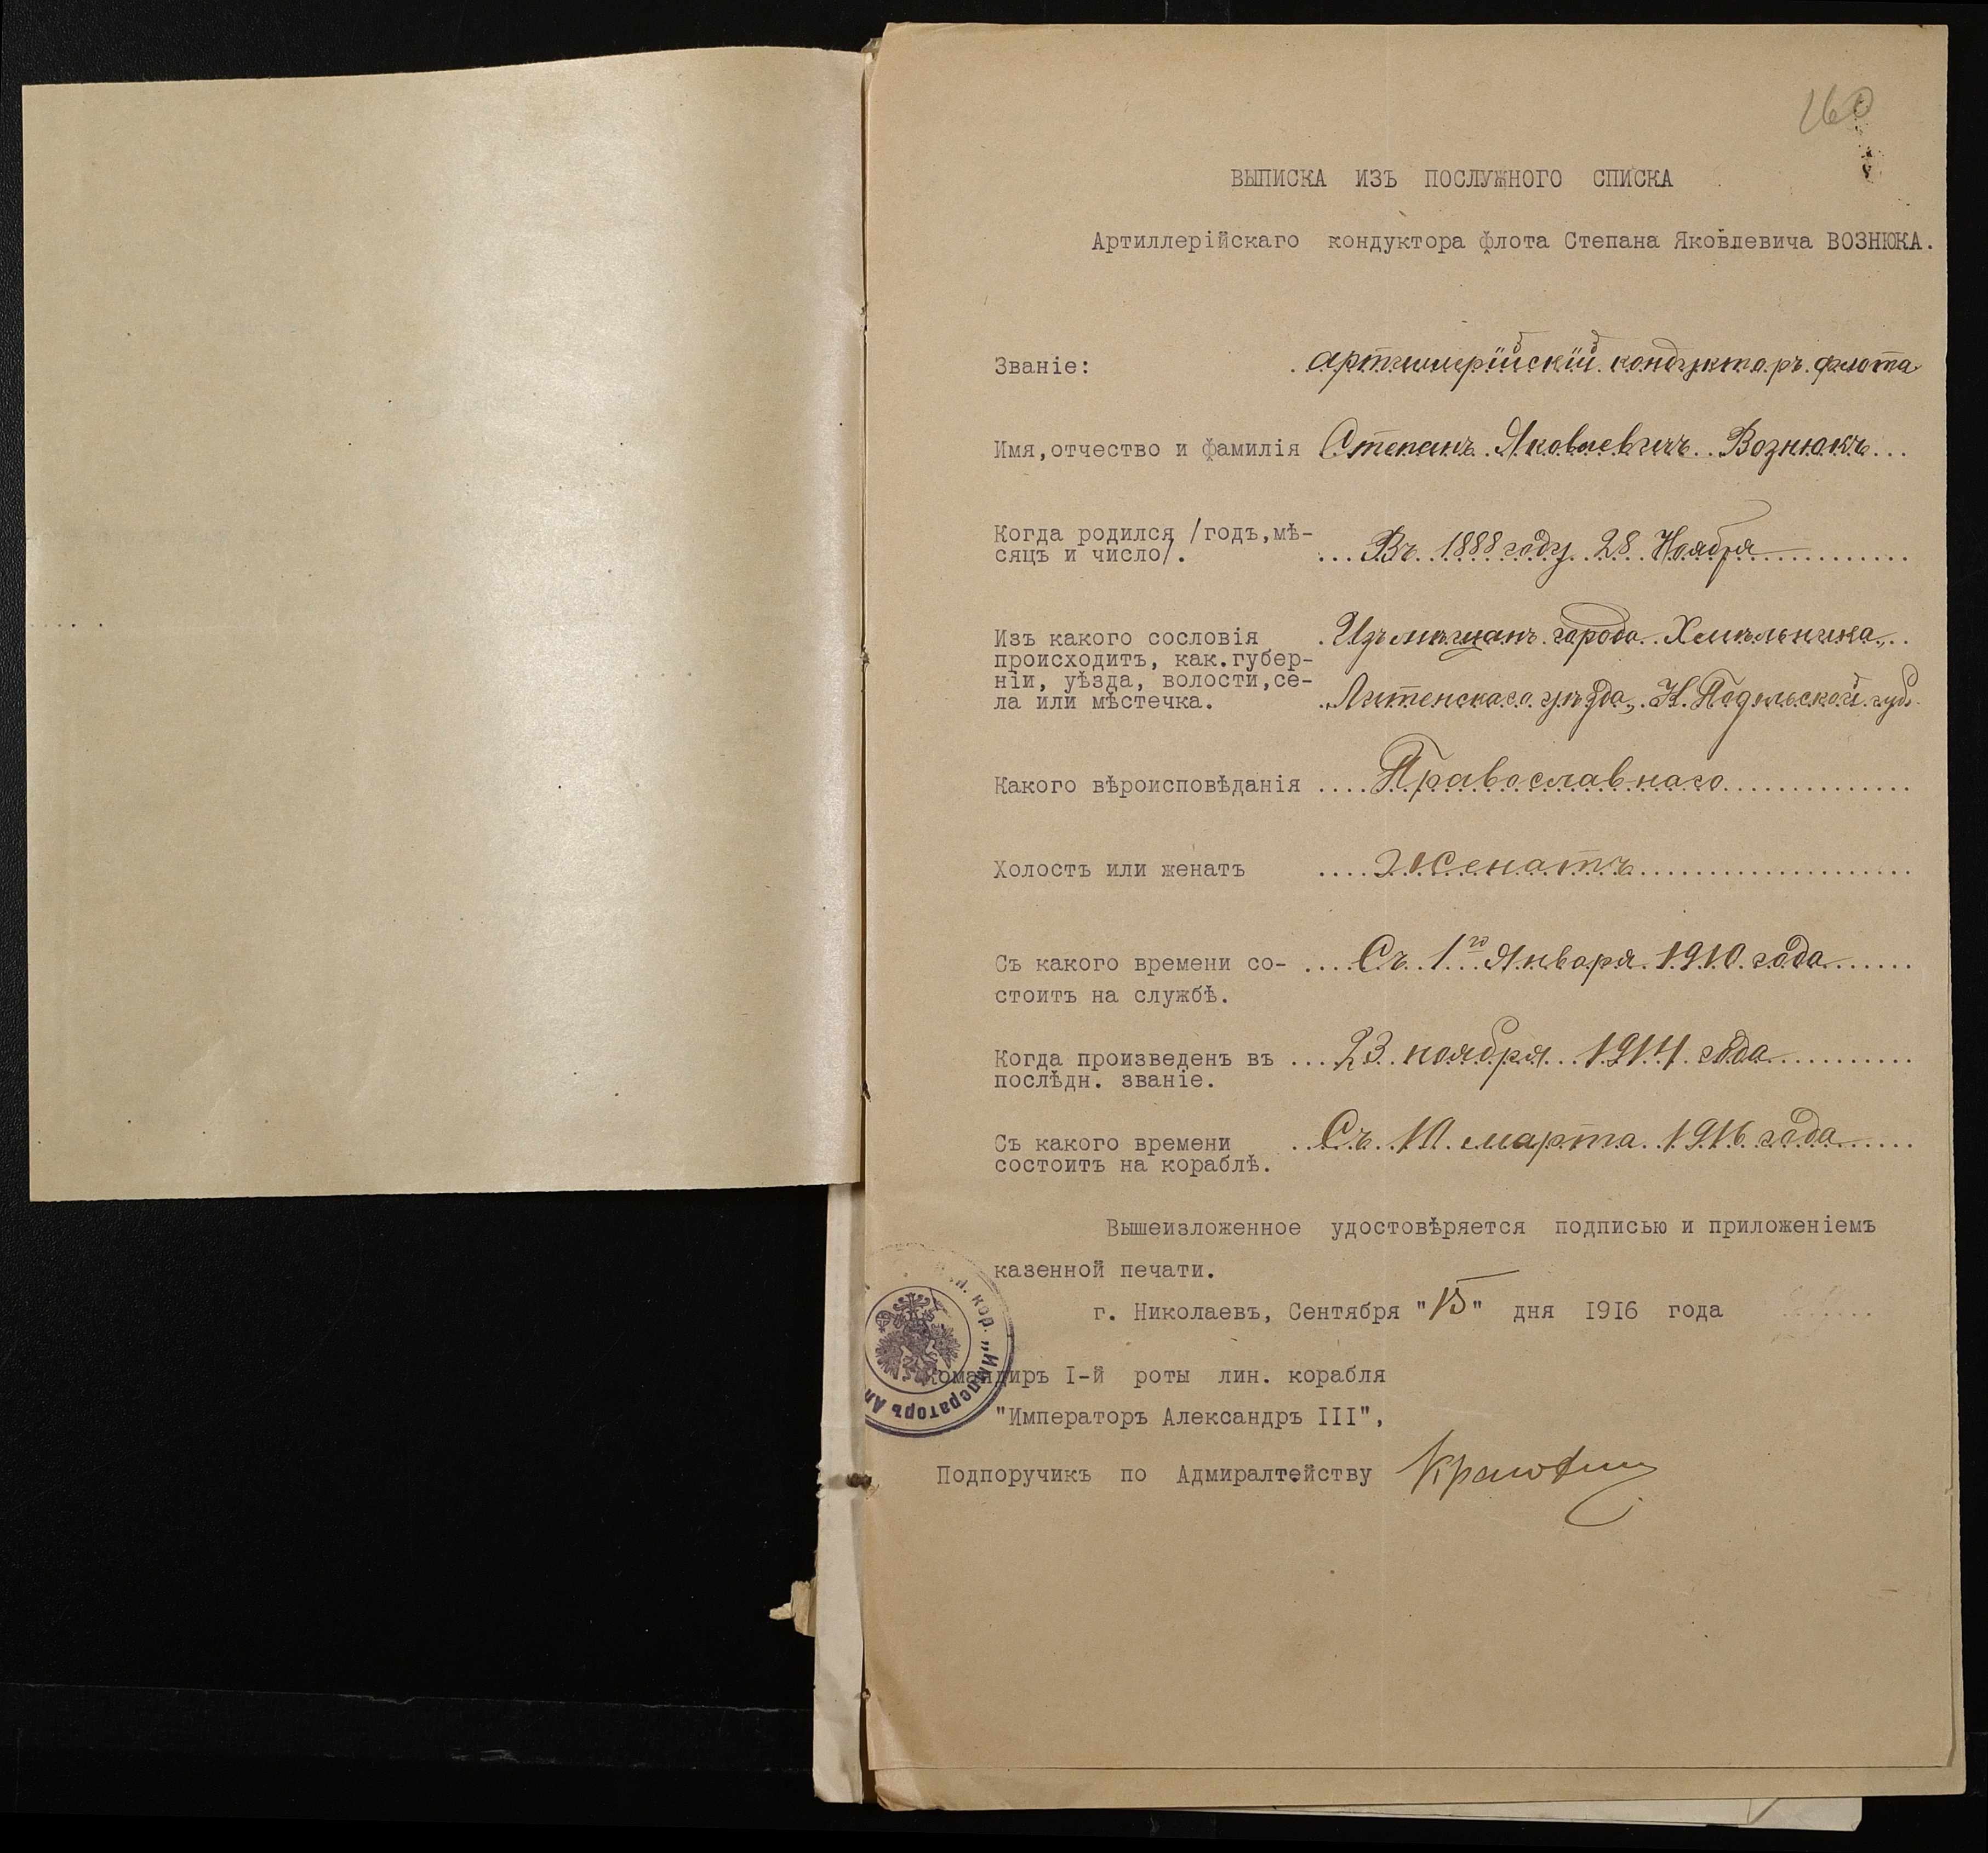 160
ВЫПИСКА ИЗЪ ПОСЛУЖНОГО СПИСКА
Артиллерійскаго кондуктора флота Степана Яковлевича ВОЗНЮКА.
Званіе: Артиллерійскій кондукторъ флота
Имя, отчество и фамилія Степанъ Яковлевичъ Вознюкъ
Когда родился /годъ, мѣ-
сяцъ и число/. Въ 1888 году 28 Ноября
Изъ какого сословія Изъ мѣщанъ города Хмѣльника,
происходитъ, как. губер-
ніи, уѣзда, волости, се- Литенскаго уѣзда, Подольской губ.
ла или мѣстечка.
Какого вѣроисповѣданія Православнаго
Холостъ или женатъ Женатъ
Съ какого времени со- Съ 1го Января 1910 года
стоитъ на службѣ.
Когда произведенъ въ 23 ноября 1914 года
послѣдн. званіе.
Съ какого времени Съ 10 марта 1916 года
состоитъ на кораблѣ.
Вышеизложенное удостовѣряется подписью и приложеніемъ
казенной печати.
г. Николаевъ, Сентября "15" дня 1916 года
кор. „Императоръ Ал
Командиръ I-й роты лин. корабля
"Императоръ Александръ III",
Подпоручикъ по Адмиралтейству